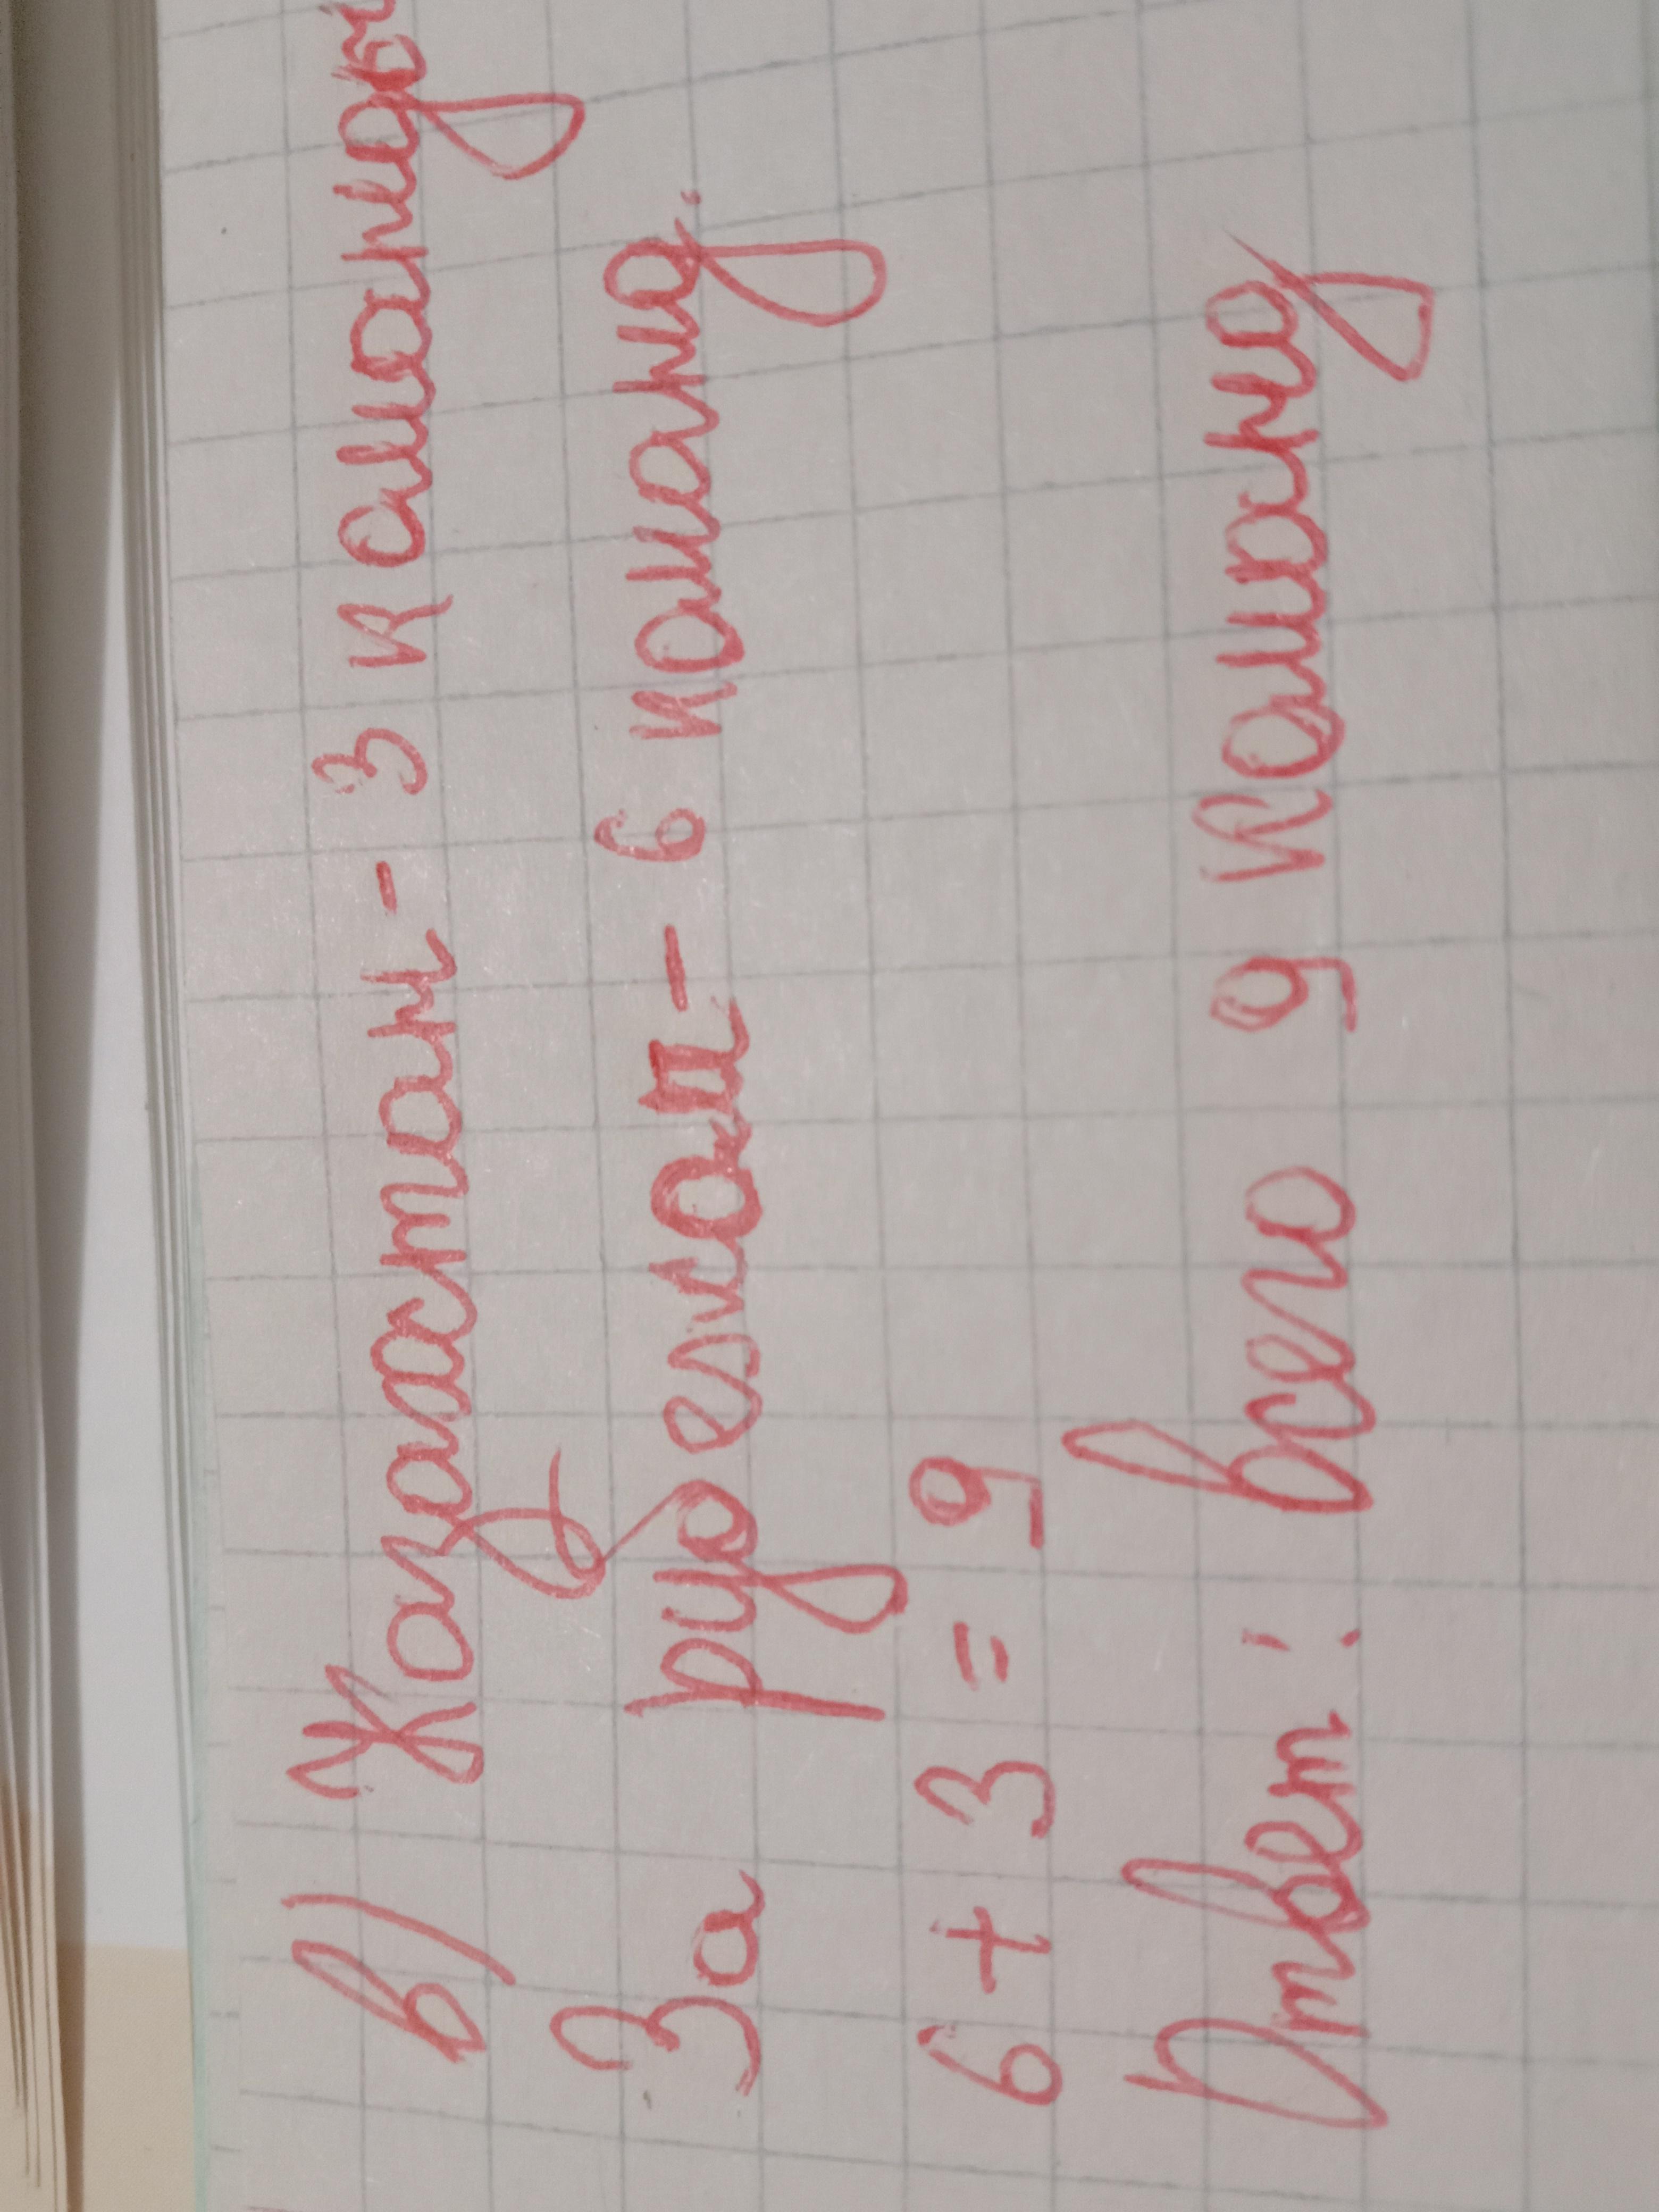 в) Казахстан - 3 команды
За рубежом - 6 команд.
6 + 3 = 9
Ответ: всего 9 команд